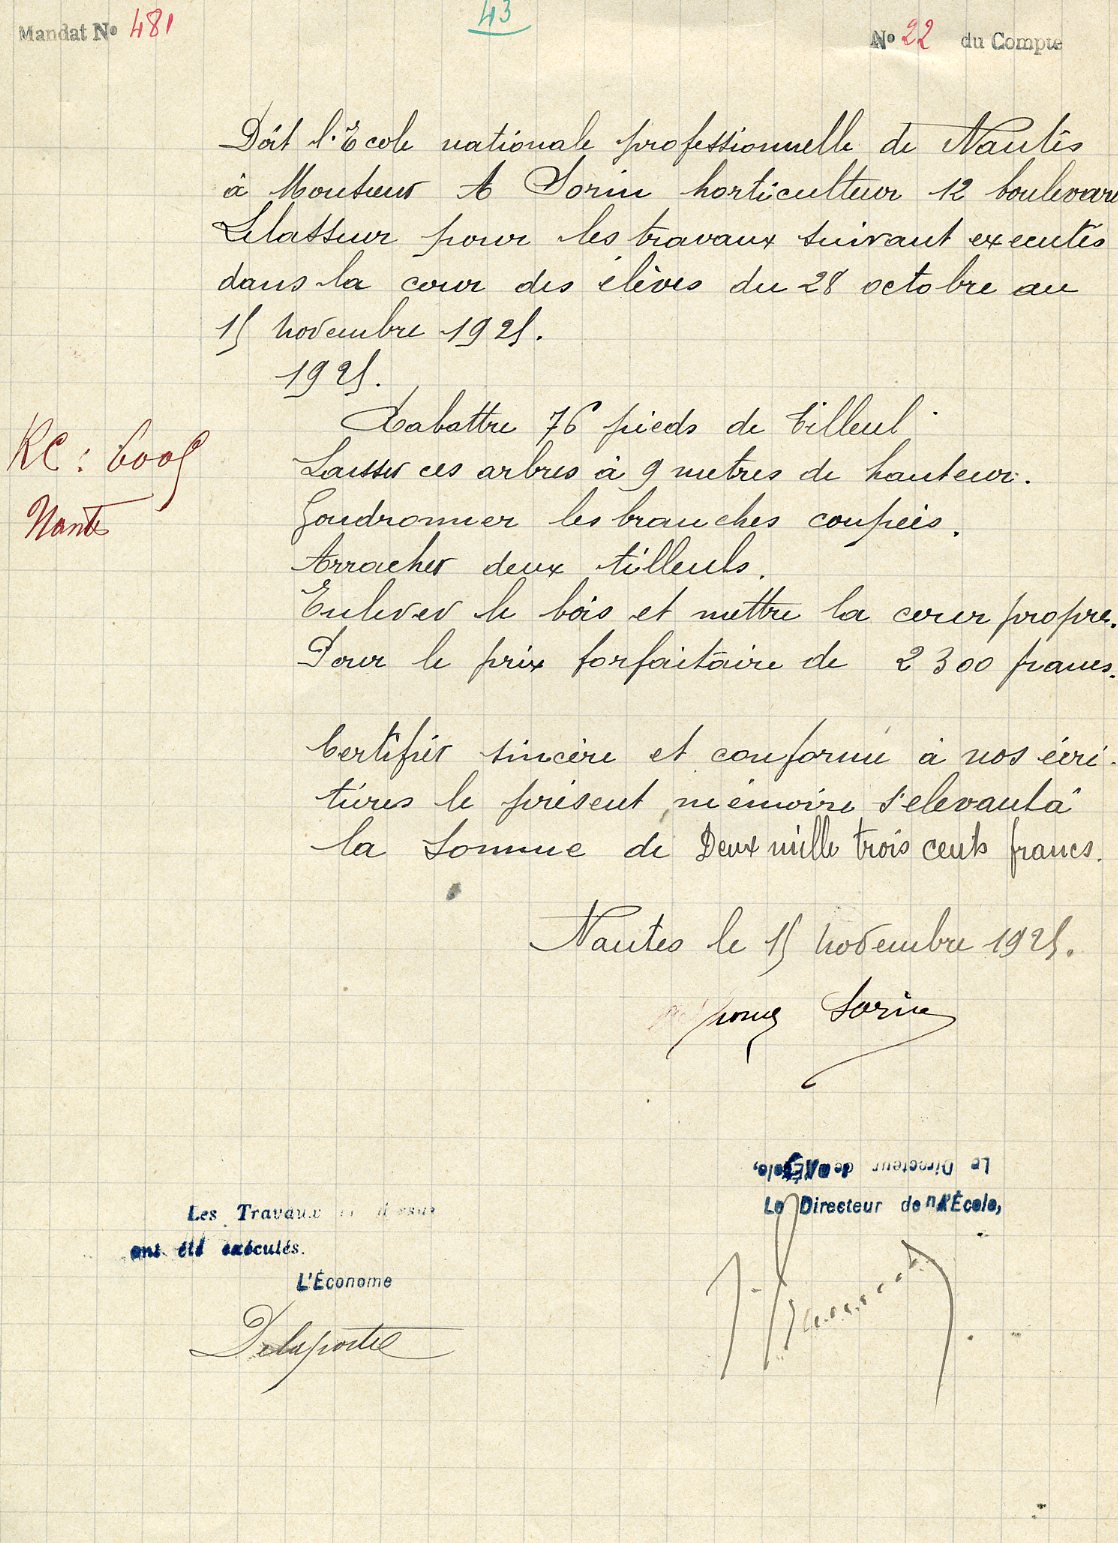 Mandat No 481
43
No 22 du Compte
Doit l'Ecole nationale professionnelle de Nantes
à Monsieur A Sorin horticulteur 12 boulevard
Lelasseur pour les travaux suivant executés
dans la cour des élèves du 28 octobre au
15 novembre 1925.
1925.
Rabattre 76 pieds de tilleul.
Laisser ces arbres à 9 metres de hauteur.
RC : 6005
Goudronner les branches coupées.
Nantes
Arracher deux tilleuls.
Enlever le bois et mettre la cour propre.
Pour le prix forfaitaire de 2300 francs.
Certifier sincère et conforme à nos écri-
tures le présent mémoire s'elevant à
la somme de Deux mille trois cents francs.
Nantes le 15 novembre 1925.
Sorin
Le Directeur de l'École,
Le Directeur de l'École,
Les Travaux
ont été exécutés.
L'Économe
Delaporte